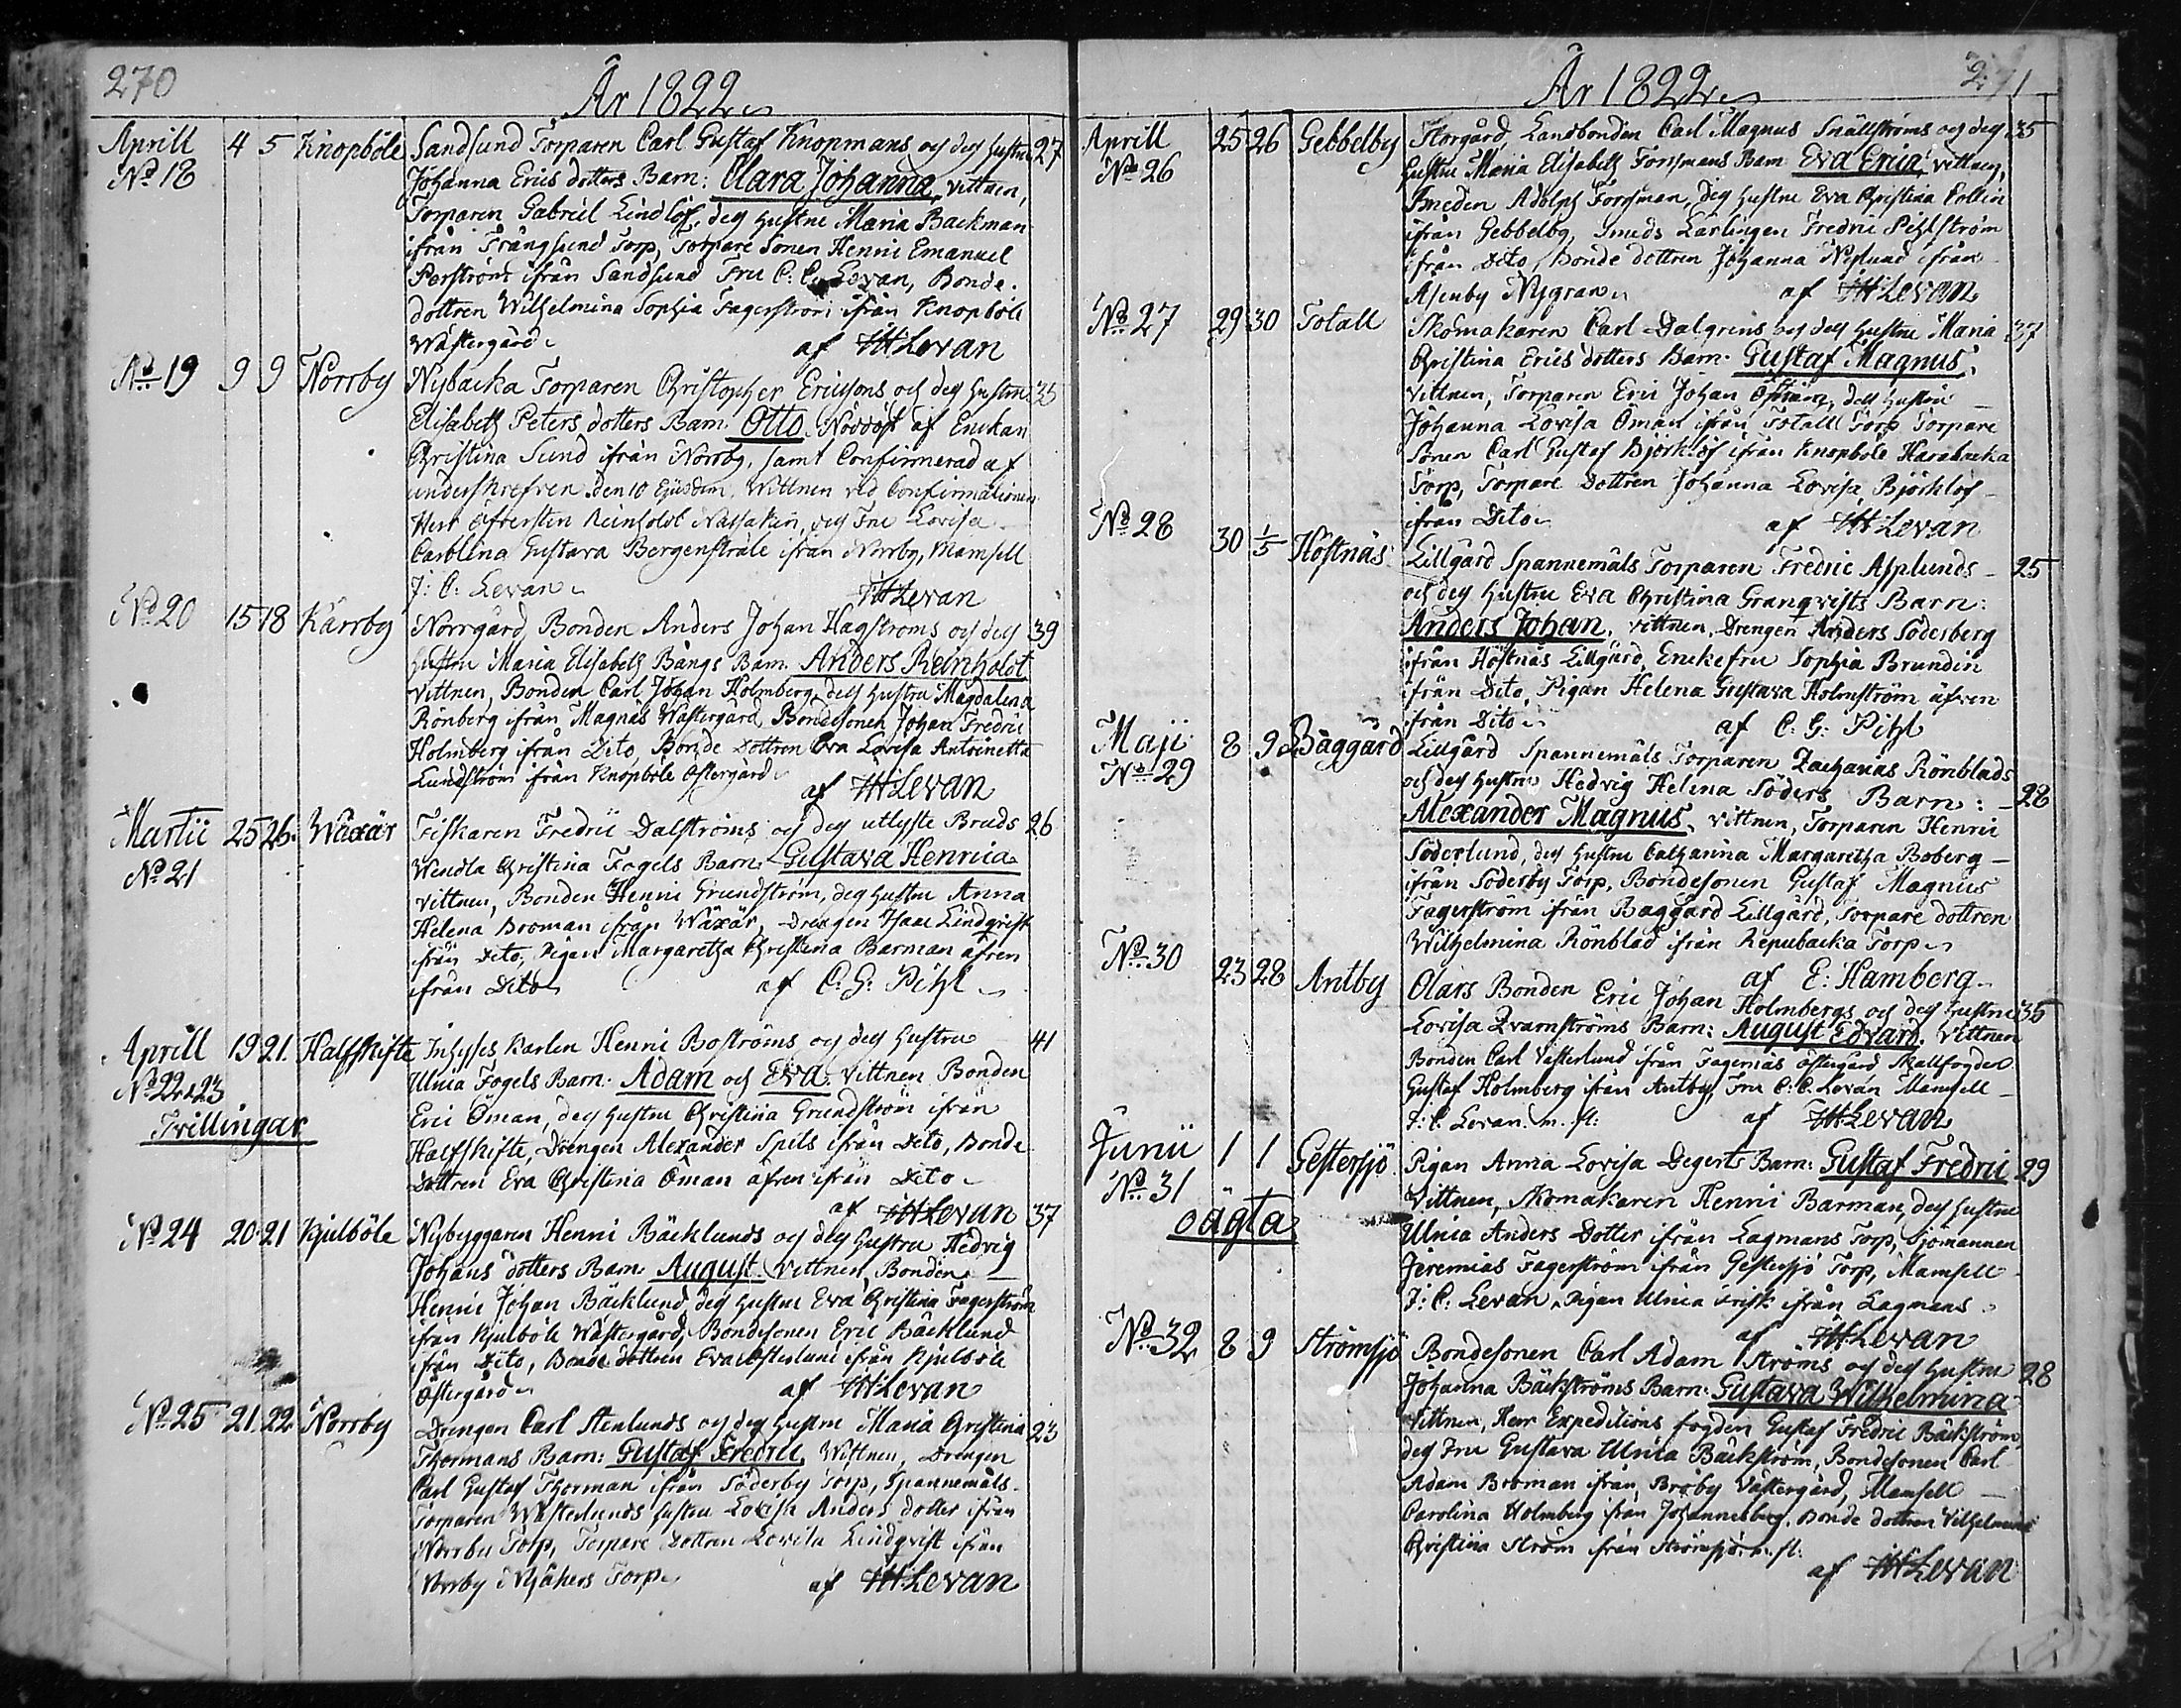 270
År 1822
Aprill 4 5 Knopböle Sandsund Torparen Carl Gustaf Knopmans och deß hustru 27
No 18 Johanna Erics dotters Barn: Clara Johanna, vittnen,
Torparen Gabriel Lindlöf, deß hustru Maria Backman
ifrån Trångsund Torp, Torpare Sonen Henric Emanuel
Perström ifrån Sandsund Fru C: C: Levan, Bonde
dottren Wilhelmina Sophia Fagerström ifrån Knopböle
Wästergård af HLevan
No 19 9 9 Norrby Nybacka Torparen Christopher Ericsons och deß hustru 35
Elisabeth Peters dotters Barn. Otto. Nöddöpt af Enckan
Christina Sund ifrån Norrby, samt Confirmerad af
underskrefven den 10 Ejusdem. Wittnen vid Confirmationen
Herr öfversten Reinholdt Nassakin, deß Fru Lovisa
Carolina Gustava Bergenstråle ifrån Norrby, Mamsell
J: C: Levan HLevan
No 20 15 18 Karrby Norrgård Bonden Anders Johan Hagströms och deß 39
hustru Maria Elisabeth Bångs Barn. Anders Reinholdt
vittnen, Bonden Carl Johan Holmberg, deß hustru Magdalena
Rönberg ifrån Magnäs Wästergård, Bondesonen Johan Fredric
Holmberg ifrån Dito, Bonde Dottren Eva Lovisa Antoinetta
Lundström ifrån Knopböle Östergård
af HLevan
Martii 25 26. Wäxär Fiskaren Fredric Dalströms och deß utlyste Bruds 26
No 21 Wendla Christina Fogels Barn Gustava Henrica
vittnen, Bonden Henric Grundström, deß hustru Anna
Helena Broman ifrån Wäxär, Drengen Isaac Lindqvist
ifrån Dito, Pigan Margaretha Christina Barman äfven
ifrån Dito af C: G: Pihl
Aprill 19 21. Halfskifte Inhyses Karlen Henric Boströms och deß hustru 41
No 22 & 23 Ulrica Fogels Barn. Adam och Eva. vittnen Bonden
Tvillingar Eric Öman, deß hustru Christina Grundström ifrån
Halfskifte, Drengen Alexander Spils ifrån Dito, Bonde
Dottren Eva Christina Öman äfven ifrån Dito
af HLevan
No 24 20 21 Kjulböle Nybyggaren Henric Bäcklunds och deß hustru Hedvig 37
Johans dotters Barn. August. vittnen, Bonden
Henric Johan Bäcklund, deß hustru Eva Christina Fagerström
ifrån Kjulböle Wästergård, Bondesonen Eric Bäcklund
ifrån Dito, Bonde dottren Eva Österlund ifrån Kjulböle
Östergård af HLevan
No 25 21. 22 Norrby Drengen Carl Stenlunds och deß hustru Maria Christina 23
Thormans Barn: Gustaf Fredric, Wittnen, Drengen
Carl Gustaf Thorman ifrån Söderby Torp, Spannemåls
Torparen Wästerlunds hustru Lovisa Anders dotter ifrån
Norrby Torp, Torpare Dottren Lovisa Lindqvist ifrån
Norrby Nyåkers Torp af HLevan
271
År 1822
Aprill 25 26 Gebbelby Storgård, Landbonden Carl Magnus Snällströms och deß 35
No 26 hustru Maria Elisabeth Forsmans Barn Eva Erica, vittnen,
Smeden Adolph Forsman, deß hustru Eva Christina Collin
ifrån Gebbelby, Smeds Lärlingen Fredric Pihlström
ifrån Dito, Bonde dottren Johanna Nylund ifrån
Asenby af HLevan
No 27 29 30 Totall Skomakaren Carl Dalgrens och deß hustru Maria 37
Christina Erics dotters Barn. Gustaf Magnus,
vittnen, Torparen Eric Johan Öhman, deß hustru
Johanna Lovisa Öman ifrån Totall Torp Torpare
Sonen Carl Gustaf Björklöf ifrån Knopböle Harabacka
Torp, Torpare Dottren Johanna Lovisa Björklöf
ifrån Dito af HLevan
No 28 30 1/5 Höstnäs Lillgård Spannemåls Torparen Fredric Asplunds 25
och deß hustru Eva Christina Granqvists Barn:
Anders Johan, vittnen, Drengen Anders Söderberg
ifrån Höstnäs Lillgård, Enckefru Sophia Brundin
ifrån Dito, Pigan Helena Gustava Holmström äfven
ifrån Dito af C: G: Pihl
Maji 8 9 Baggård Lillgård Spannemåls Torparen Zacharias Rönblads
No 29 och deß hustru Hedvig Helena Söders Barn: 28
Alexander Magnus, vittnen, Torparen Henric
Söderlund, deß hustru Catharina Margaretha Boberg
ifrån Söderby Torp, Bondesonen Gustaf Magnus
Fagerström ifrån Baggård Lillgård, Torpare dottren
Wilhelmina Rönblad ifrån Repubacka Torp
af E: Hamberg
No 30 23 28 Antby Olars Bonden Eric Johan Holmbergs och deß hustru 35
Lovisa Qvarnströms Barn: August Edvard. Vittnen
Bonden Carl Västerlund ifrån Fagernäs Östergård Skallfogden
Gustaf Holmberg ifrån Antby, Fru C: C: Levan Mamsell
J: C: Levan m. fl: af HLevan
Junii 1 1 Gestersjö Pigan Anna Lovisa Degerts Barn: Gustaf Fredric 29
No 31 Vittnen, Skomakaren Henric Barman, deß hustru
oägta Ulrica Anders Dotter ifrån Lagmans Torp, Sjömannen
Jeremias Fagerström ifrån Gestersjö Torp, Mamsell
J: C: Levan, Pigan Ulrica Frisk ifrån Lagmans
af HLevan
No 32 8 9 Strömsjö Bondesonen Carl Adam Ströms och deß hustru 28
Johanna Bäckströms Barn: Gustava Wilhelmina
vittnen, Herr Expeditions fogden Gustaf Fredric Bäckström,
deß Fru Gustava Ulrica Bäckström, Bondesonen Carl
Adam Broman ifrån Broby Västergård, Mamsell
Carolina Holmberg ifrån Johannesberg. Bonde dottren Vilhelmina
Christina Ström ifrån Strömsjö. m. fl:
af HLevan